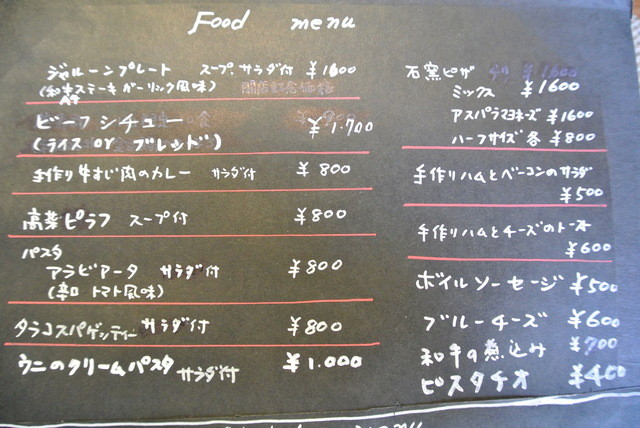 Food menu
ジャルーンプレート スープ、サラダ付 ¥1600
(和牛ステーキ ガーリック風味)
ビーフシチュー ¥1.700
(ライス or ブレッド)
手作り牛すじ肉のカレー サラダ付 ¥800
高菜ピラフ スープ付 ¥800
パスタ
アラビアータ サラダ付 ¥800
(辛口 トマト風味)
タラコスパゲッティー サラダ付 ¥800
ウニのクリームパスタ サラダ付 ¥1.000
石窯ピザ
ミックス ¥1600
アスパラマヨネーズ ¥1600
ハーフサイズ 各 ¥800
手作りハムとベーコンのサラダ
¥500
手作りハムとチーズのトースト
¥600
ボイルソーセージ ¥500
ブルーチーズ ¥600
和牛の煮込み ¥700
ピスタチオ ¥400